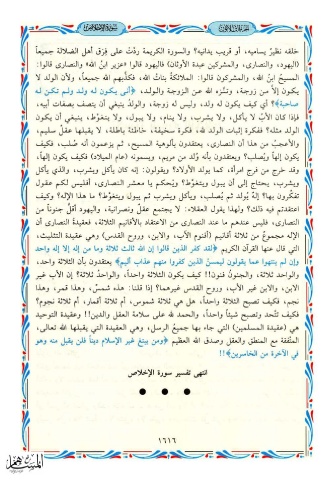 الجزء الثلاثون
سورة الإخلاص
خلقه نظيرٌ يساميه، أو قريب يدانيه؟ والسورة الكريمة ردَّتْ على فِرَق أهل الضلالة جميعاً
(اليهود، والنصارى، والمشركين عبدة الأوثان) فاليهود قالوا «عزير ابنُ الله» والنصارى قالوا:
المسيحُ ابنُ الله، والمشركون قالوا: الملائكةُ بناتُ الله، فكذَّبهم الله جميعاً، ولأن الولد لا
يكون إلّا من زوجة، وتنزَّه الله عن الزوجة والولد، ﴿أنى يكون له ولد ولم تكن له
صاحبة﴾؟ أي كيف يكون له ولد، وليس له زوجة، والولدُ ينبغي أن يتصف بصفات أبيه،
فإذا كان الأبُ لا يأكل، ولا يشرب، ولا ينام، ولا يبول، ولا يتغوَّط، ينبغي أن يكون
الولد مثله؟ ففكرة إثبات الولد لله، فكرة سخيفة، خاطئة باطلة، لا يقبلها عقلٌ سليم،
والأعجبُ من هذا أن النصارى، يعتقدون بألوهية المسيح، ثم يزعمون أنه صُلب، فكيف
يكون إلهاً ويُصلب؟ ويعتقدون بأنه وُلد من مريم، ويسمونه (عام الميلاد) فكيف يكون إلهاً،
وقد خرج من فرج امرأة، كما يولد الأولاد؟ ويقولون: إنه كان يأكل ويشرب، والذي يأكل
ويشرب، يحتاج إلى أن يبول ويتغوَّط؟ ويحكم يا معشر النصارى، أفليس لكم عقول
تفكّرون بها؟ إلهٌ يُولد ثم يُصلب، ويأكل ويشرب ثم يبول ويتغوَّط؟ ما هذا الإله؟ وكيف
اعتقدتم فيه ذلك؟ ولهذا يقول العقلاء: لا يجتمع عقلٌ ونصرانية، واليهود أقلُّ جنوناً من
النصارى، فليس عندهم ما عند النصارى من الاعتقاد بالأقانيم الثلاثة، فعقيدةُ النصارى أن
الإله مجموعٌ من ثلاثة أقانيم (أقنوم الأب، والابن، وروح القدس) وهي عقيدة التثليث،
التي قال عنها القرآن الكريم ﴿لقد كفر الذين قالوا إن الله ثالث ثلاثة وما من إله إلا إله واحد
وإن لم ينتهوا عما يقولون ليمسنّ الذين كفروا منهم عذاب أليم﴾ يعتقدون بأن الثلاثة واحد،
والواحد ثلاثة، والجنونُ فنون!! كيف تكون الثلاثة واحداً، والواحدُ ثلاثة؟ إن الأب غير
الابن، والابن غير الأب، وروح القدس غيرهما؟ إذا قلنا: هذه شمسٌ، وهذا قمر، وهذا
نجم، فكيف تصبح الثلاثة واحداً، هل هي ثلاثة شموس، أم ثلاثة أقمار، أم ثلاثة نجوم؟
فكيف تتَّحد وتصبح شيئاً واحداً، والحمد لله على سلامة العقل والدين!! وعقيدة التوحيد
هي (عقيدة المسلمين) التي جاء بها جميعُ الرسل، وهي العقيدة التي يقبلها الله تعالى،
المتَّفقة مع المنطق والعقل وصدق الله العظيم ﴿ومن يبتغ غير الإسلام ديناً فلن يقبل منه وهو
في الآخرة من الخاسرين﴾!!
انتهى تفسير سورة الإخلاص
١٦١٦